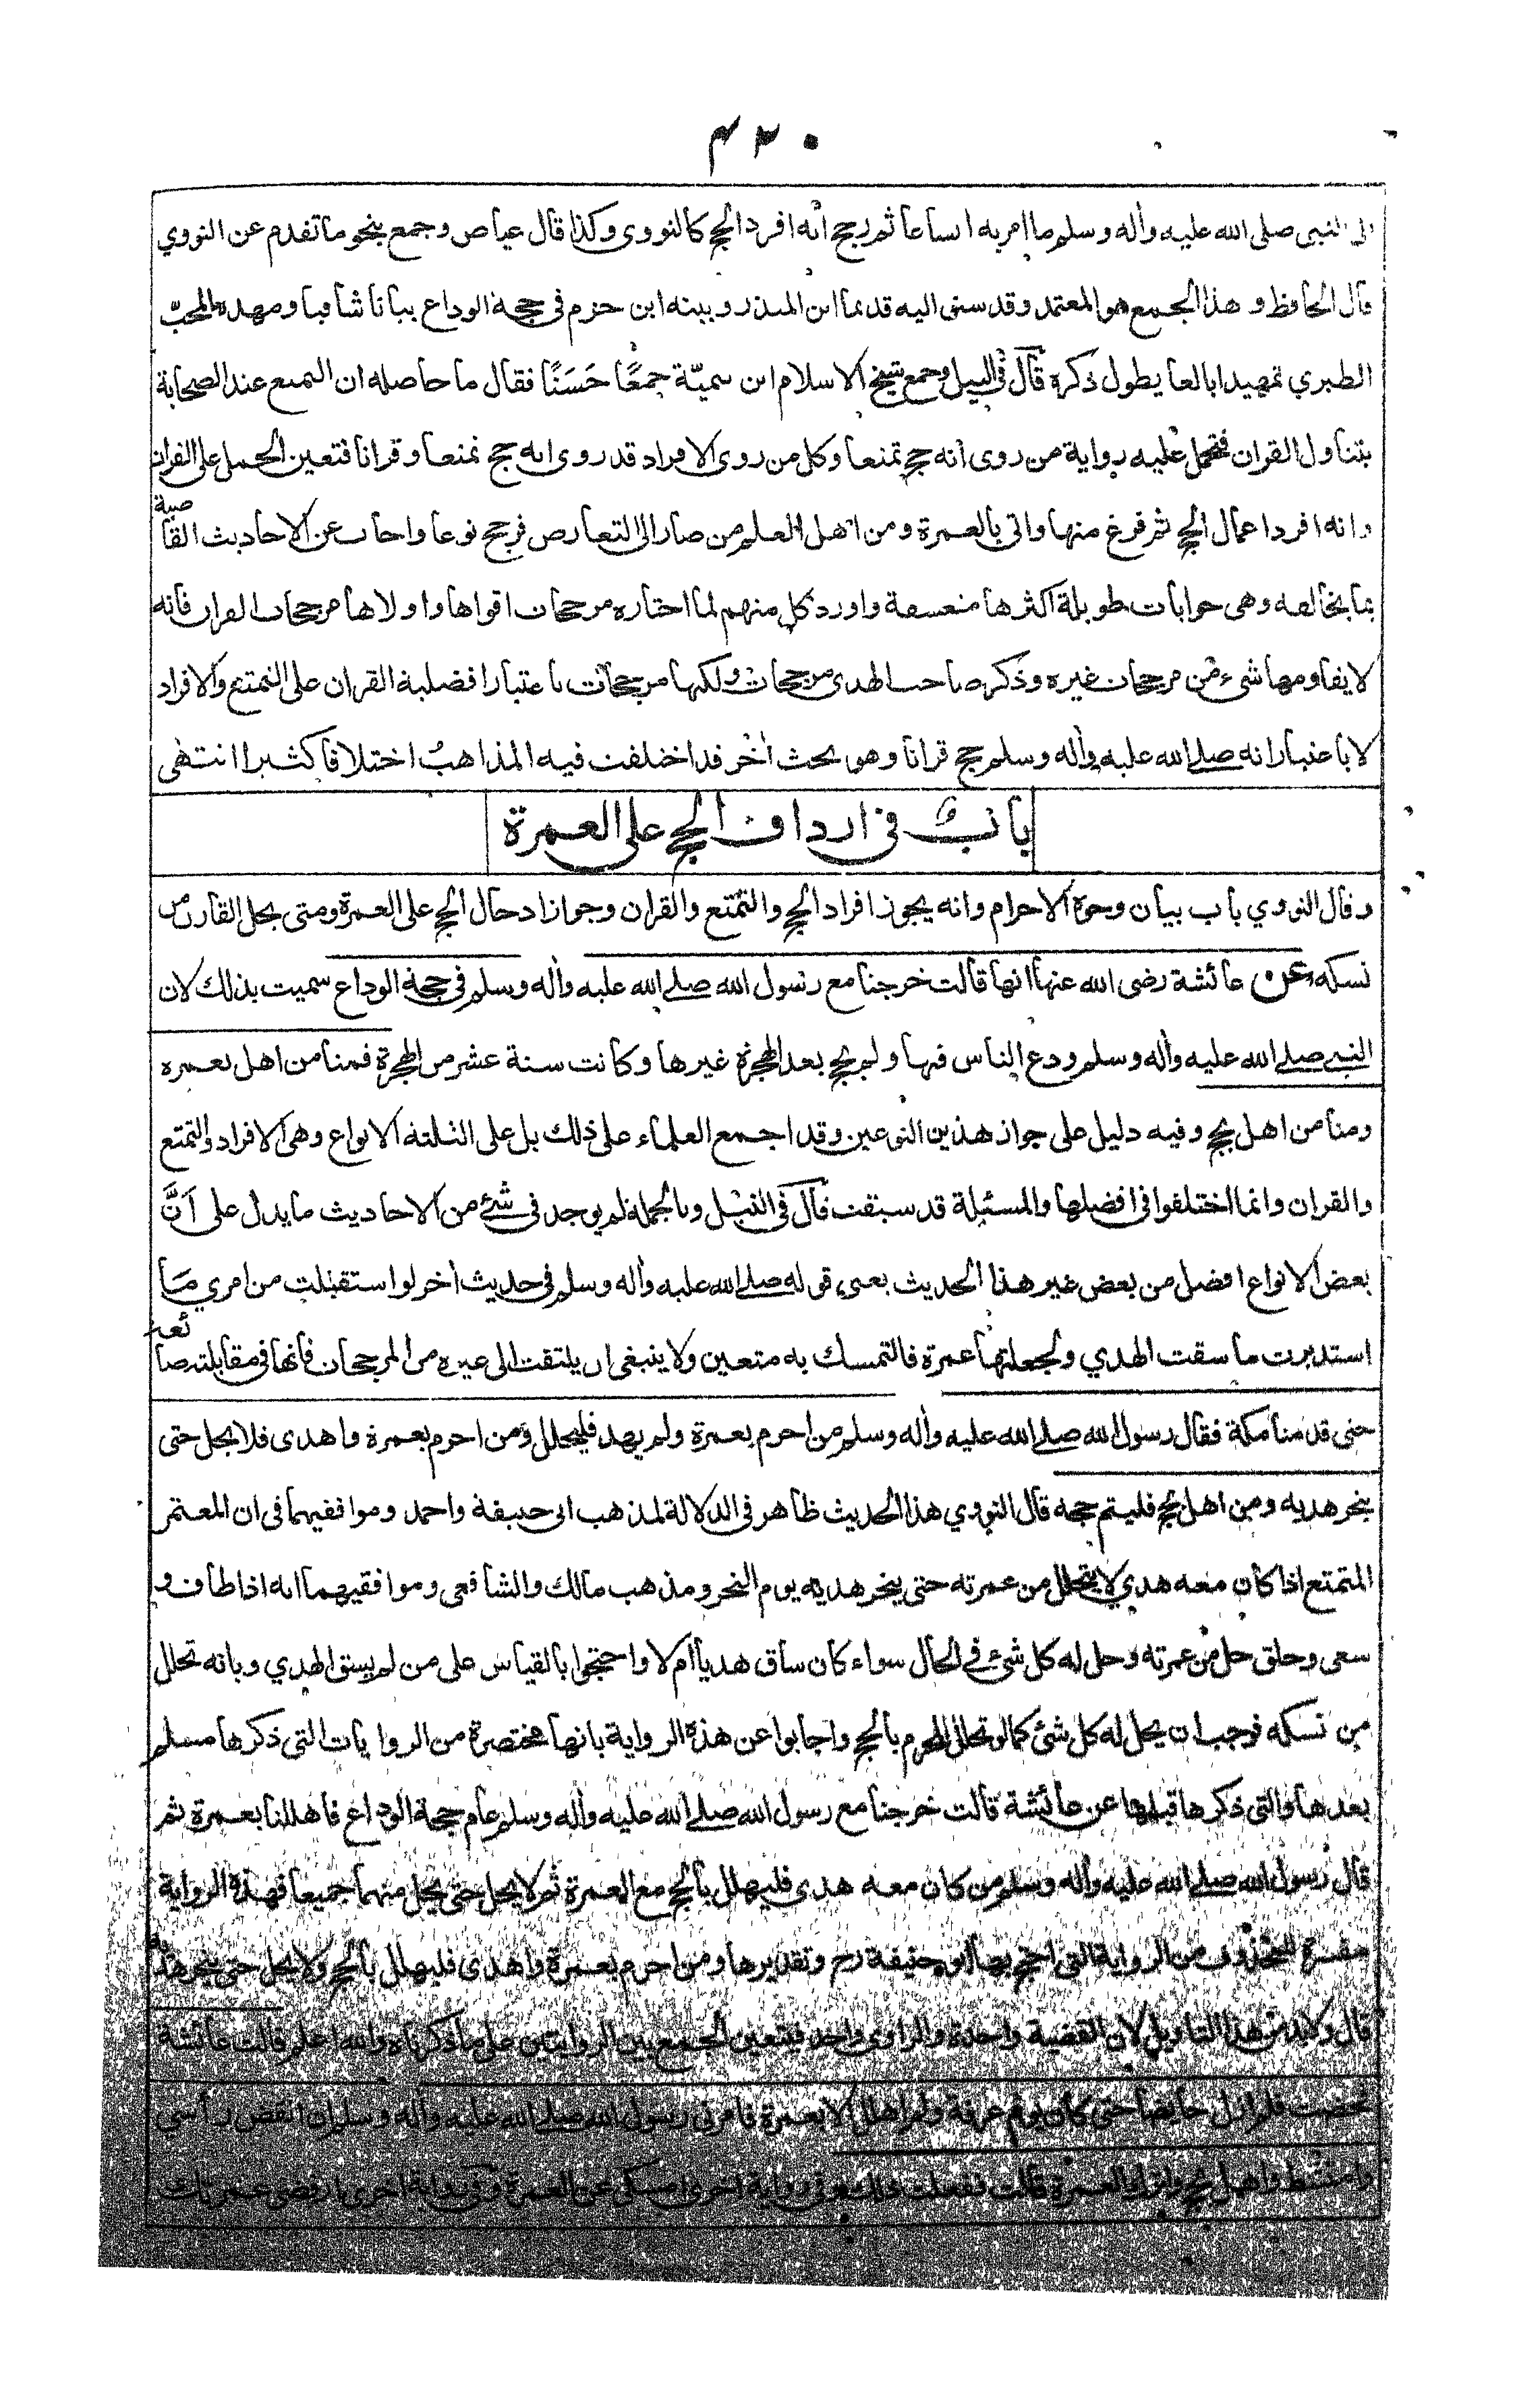 ٤٢٠
الى النبي صلى الله عليه واله وسلم ما امر به اساعا ثم رجح انه افرد الحج كالنووى وكذا قال عياض وجمع بنحو ما تقدم عن النووي
قال الحافظ وهذا الجمع هو المعتمد وقد سبق اليه قديما ابن المنذر وبينه ابن حزم في حجة الوداع بيانا شافيا ومهده المحب
الطبري تمهيدا بالغا يطول ذكره قال في النيل وجمع شيخ الاسلام ابن تيمية جمعًا حَسَنًا فقال ما حاصله ان التمتع عند الصحابة
يتناول القران فتحمل عليه رواية من روى انه حج تمتعا وكل من روى الافراد قد روى انه حج تمتعا وقرانا فتعين الحمل على القران
وانه افرد اعمال الحج ثم فرغ منها واتى بالعمرة ومن اهل العلم من صار الى التعارض فرجح نوعا واجاب عن الاحاديث القاضية
بما يخالفه وهى جوابات طويلة اكثرها متعسفة واورد كل منهم لما اختاره مرجحات اقواها واولاها مرجحات القران فانه
لا يقاومها شيء من مرجحات غيره وذكر صاحب الهدى مرجحات ولكنها مرجحات باعتبار افضلية القران على التمتع والافراد
لا باعتبار انه صلى الله عليه واله وسلم حج قرانا وهو بحث اخر قد اختلفت فيه المذاهب اختلافا كثيرا انتهى
باب في ارداف الحج على العمرة
وقال النووي باب بيان وجوه الاحرام وانه يجوز افراد الحج والتمتع والقران وجواز ادخال الحج على العمرة ومتى يحل القارن من
نسكه عن عائشة رضى الله عنها انها قالت خرجنا مع رسول الله صلى الله عليه واله وسلم في حجة الوداع سميت بذلك لان
النبى صلى الله عليه واله وسلم ودع الناس فيها ولم يحج بعد الهجرة غيرها وكانت سنة عشر من الهجرة فمنا من اهل بعمرة
ومنا من اهل بحج وفيه دليل على جواز هذين النوعين وقد اجمع العلماء على ذلك بل على الثلثة الانواع وهى الافراد والتمتع
والقران وانما اختلفوا في افضلها والمسئلة قد سبقت قال في النيل وبالجملة فلم يوجد في شئ من الاحاديث ما يدل على اَنَّ
بعض الانواع افضل من بعض غير هذا الحديث يعنى قوله صلى الله عليه واله وسلم في حديث اخر لو استقبلت من امري مَا
استدبرت ما سقت الهدي ولجعلتها عمرة فالتمسك به متعين ولا ينبغى ان يلتفت الى غيره من المرجحات فانها في مقابلته ضائعة
حتى قدمنا مكة فقال رسول الله صلى الله عليه واله وسلم من احرم بعمرة ولم يهد فليحلل ومن احرم بعمرة واهدى فلا يحل حتى
ينحر هديه ومن اهل بحج فليتم حجه قال النووي هذا الحديث ظاهر في الدلالة لمذهب ابى حنيفة واحمد وموافقيهما في ان المعتمر
المتمتع اذا كان معه هدي لا يتحلل من عمرته حتى ينحر هديه يوم النحر ومذهب مالك والشافعى وموافقيهما انه اذا طاف و
سعى وحلق حل من عمرته وحل له كل شئ في الحال سواء كان ساق هديا ام لا واحتجوا بالقياس على من لم يسق الهدي وبانه تحلل
من نسكه فوجب ان يحل له كل شئ كما لو تحلل المحرم بالحج واجابوا عن هذه الرواية بانها مختصرة من الروايات التى ذكرها مسلم
بعدها والتى ذكرها قبلها عن عائشة قالت خرجنا مع رسول الله صلى الله عليه واله وسلم عام حجة الوداع فاهللنا بعمرة ثم
قال رسول الله صلى الله عليه واله وسلم من كان معه هدى فليهلل بالحج مع العمرة ثم لا يحل حتى يحل منهما جميعا فهذه الرواية
مفسرة للمحذوف من الرواية التى احتج بها ابو حنيفة رح وتقديرها ومن احرم بعمرة واهدى فليهلل بالحج ولا يحل حتى ينحر هديه
قال ولا بد من هذا التاويل لان القضية واحدة والراوى واحد فتعين الجمع بين الروايتين على ما ذكرناه والله اعلم قالت عائشة
فحضت فلم ازل حائضا حتى كان يوم عرفة ولم اهلل الا بعمرة فامرنى رسول الله صلى الله عليه واله وسلم ان انقض رأسي
وامتشط واهل بحج واترك العمرة قالت ففعلت ذلك وفي رواية اخرى امسكى عن العمرة وفي رواية اخرى ارفضى عمرتك